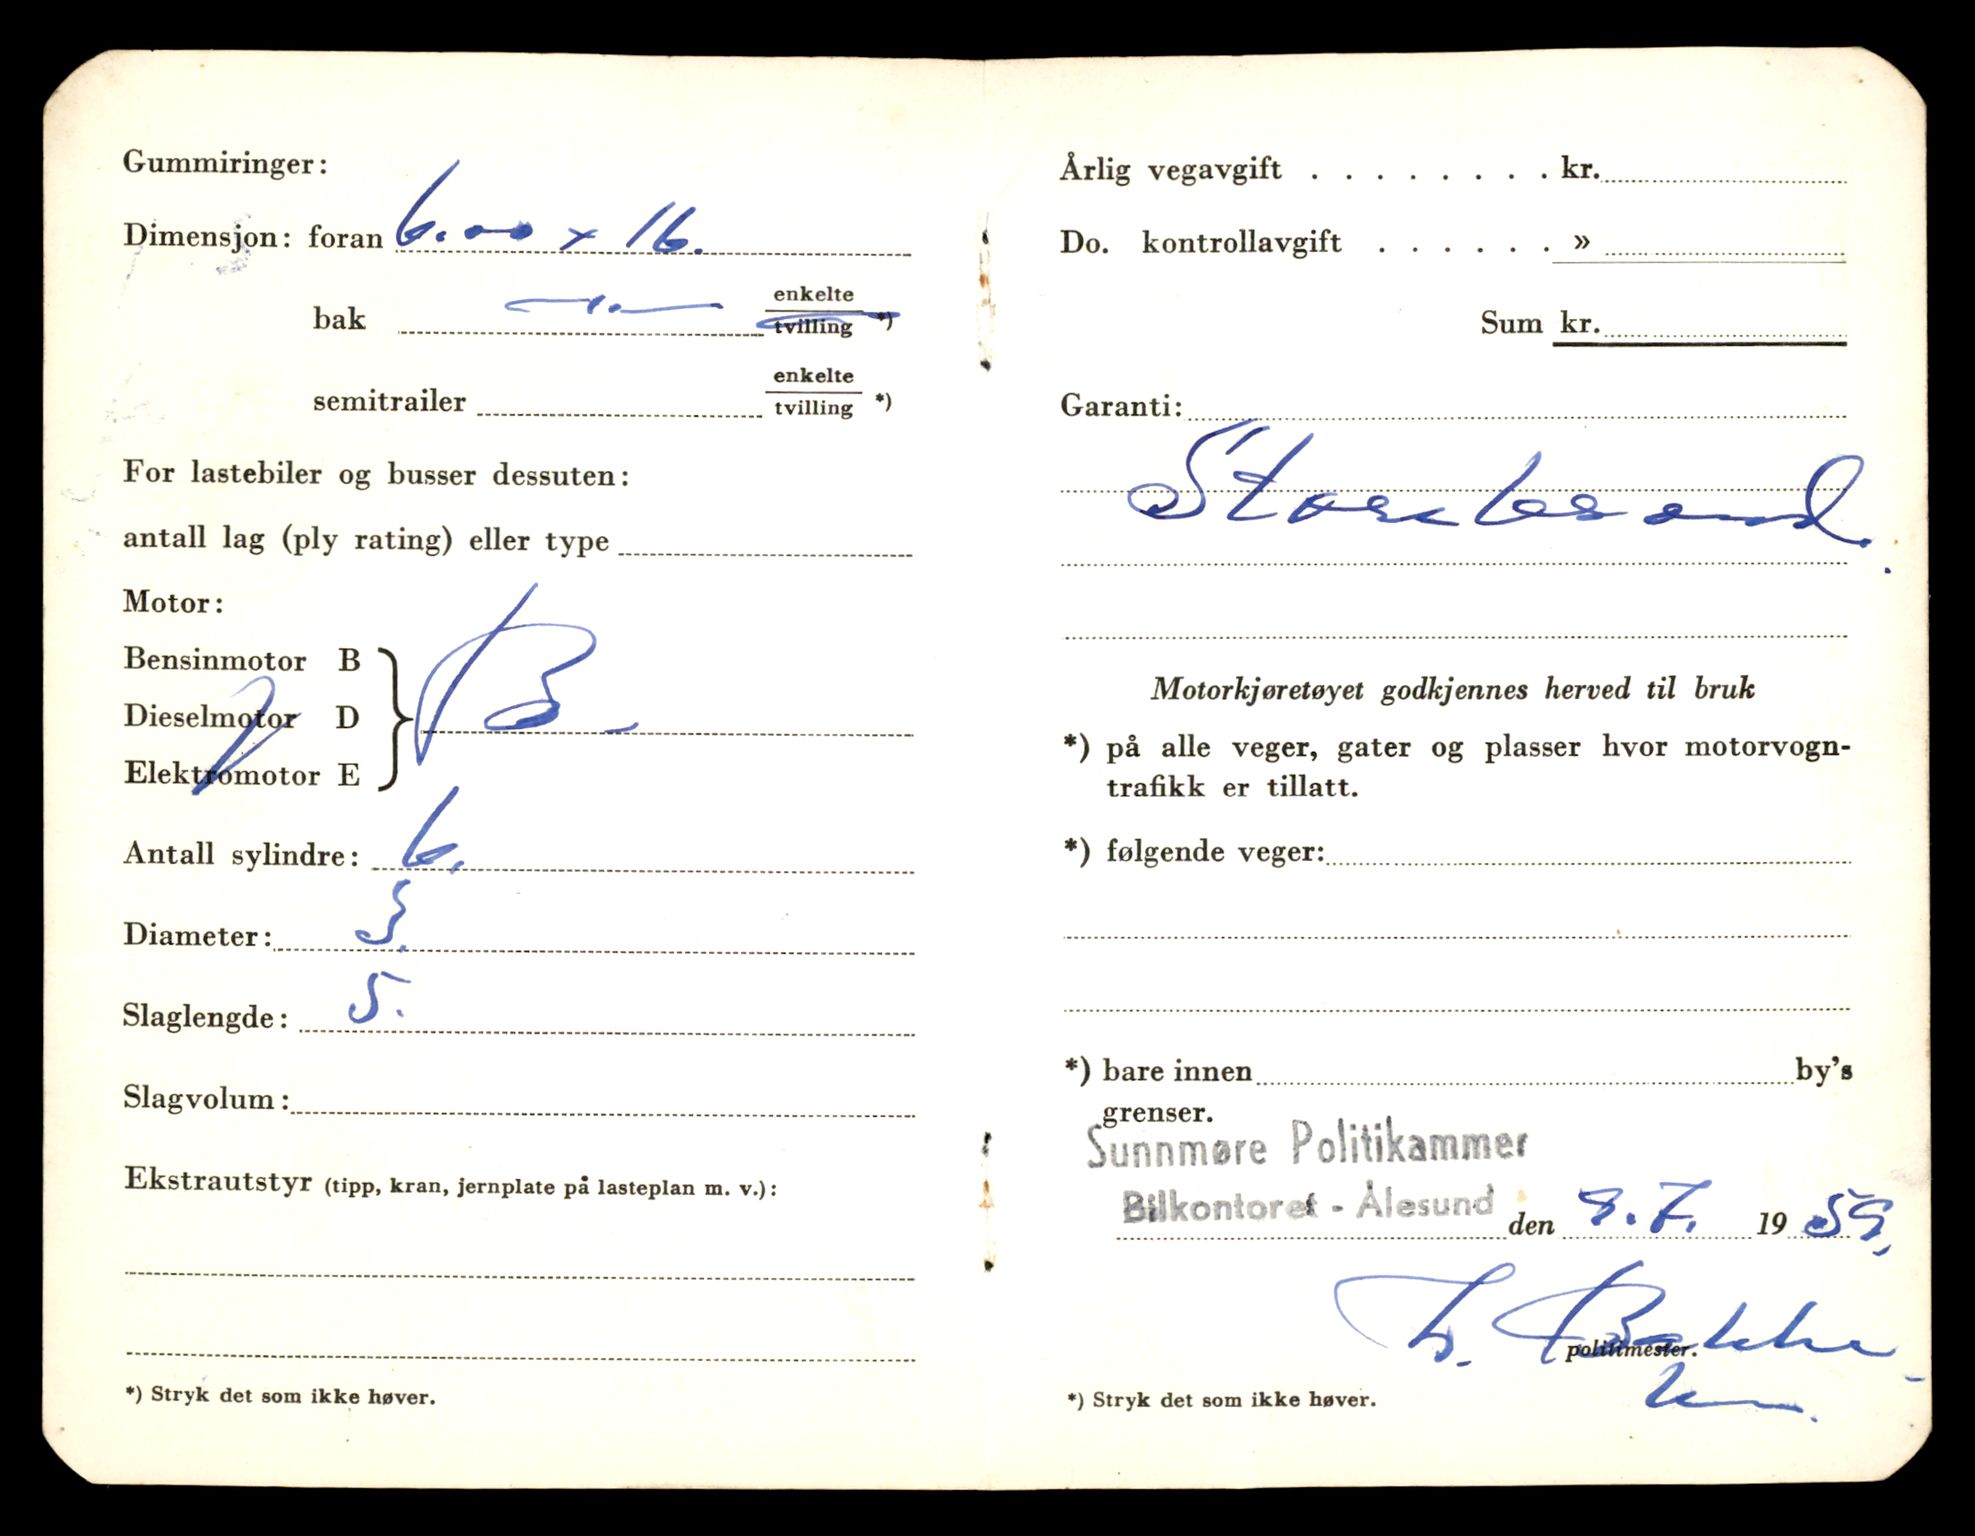 Gummiringer:
Dimensjon: foran 6.00 x 16.
bak — " — enkelte
tvilling *)
semitrailer enkelte
tvilling *)
For lastebiler og busser dessuten:
antall lag (ply rating) eller type
Motor:
Bensinmotor B
Dieselmotor D
Elektromotor E
B
Antall sylindre: 6.
Diameter: 3.
Slaglengde: 5.
Slagvolum:
Ekstrautstyr (tipp, kran, jernplate på lasteplan m. v.):
*) Stryk det som ikke høver.
Årlig vegavgift . . . . . . . . kr.
Do. kontrollavgift . . . . . . »
Sum kr.
Garanti:
Storebrand.
Motorkjøretøyet godkjennes herved til bruk
*) på alle veger, gater og plasser hvor motorvogn-
trafikk er tillatt.
*) følgende veger:
*) bare innen by's
grenser.
Sunnmøre Politikammer
Bilkontoret - Ålesund den 8.7. 1959.
Bakke
politimester.
*) Stryk det som ikke høver.